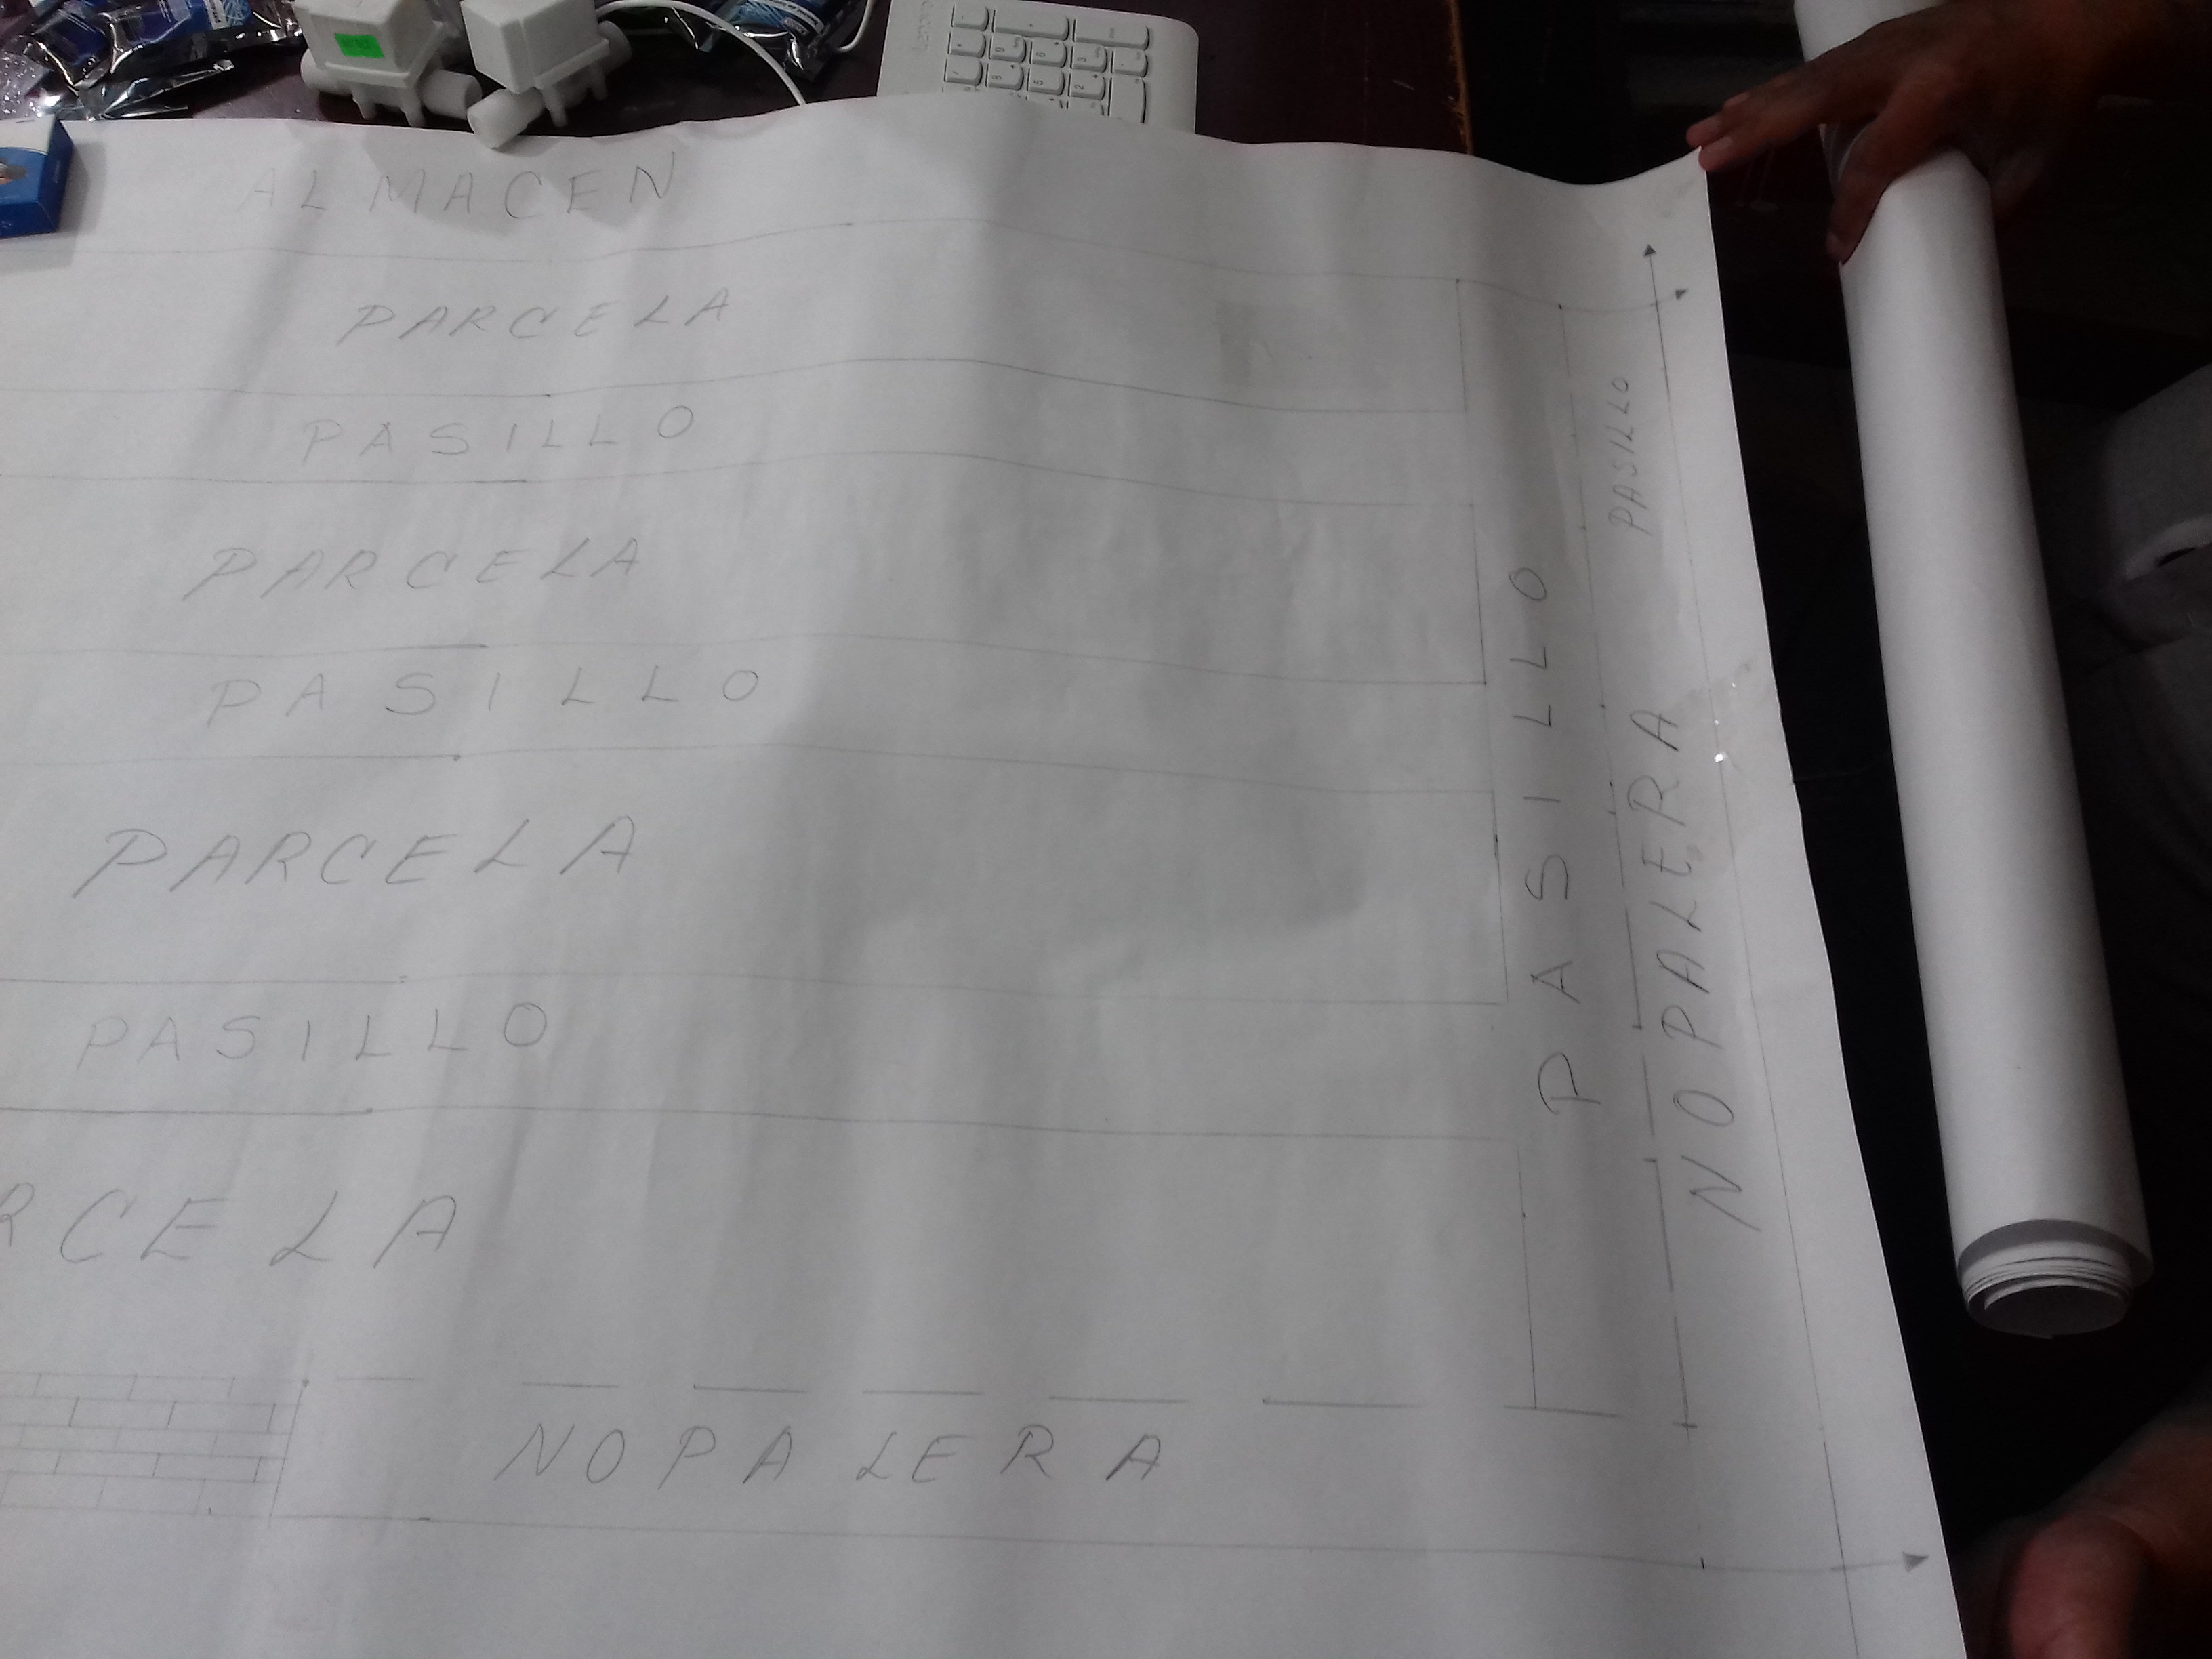 ALMACEN
PARCELA
PASILLO
PARCELA
PASILLO
PARCELA
PASILLO
RCELA
NOPALERA
PASILLO
PASILLO
NOPALERA